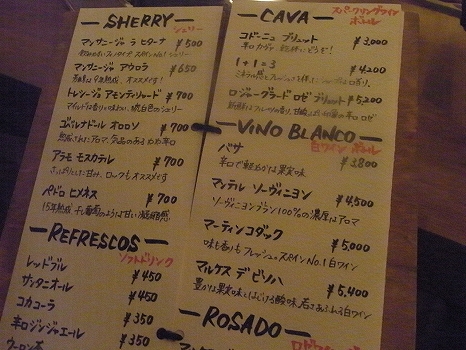 SHERRY
シェリー
マンサニージャ ラ ヒターナ ¥500
マンサニージャ アウロラ ¥650
トレシージャ アモンティリャード ¥700
マイルドな香りの味わい、琥珀色のシェリー
ゴベルナドール オロロソ ¥700
熟成されたアロマ、気品のある やや辛口
アラモ モスカテル ¥700
さっぱりとした甘口、ロックもオススメです
ペドロ ヒメネス ¥700
REFRESCOS
ソフトドリンク
レッドブル ¥450
サンタニオール ¥450
コカコーラ ¥350
辛口ジンジャエール ¥350
ウーロン茶
CAVA
スパークリングワイン
ボトル
コドーニュ ブリュット ¥3,000
1+1=3 ¥4,200
ロジャーグラード ロゼ ブリュット ¥5,200
VINO BLANCO
白ワイン ボトル
バサ ¥3,800
辛口で軽やかな果実味
マンテル ソーヴィニヨン ¥4,500
ソーヴィニヨンブラン100%の濃厚なアロマ
マーティンコダック ¥5,000
味も香りもフレッシュのスペインNo.1白ワイン
マルケス デ ビソハ ¥5,400
豊かな果実味とはじける酸味 若さあふれる白ワイン
ROSADO